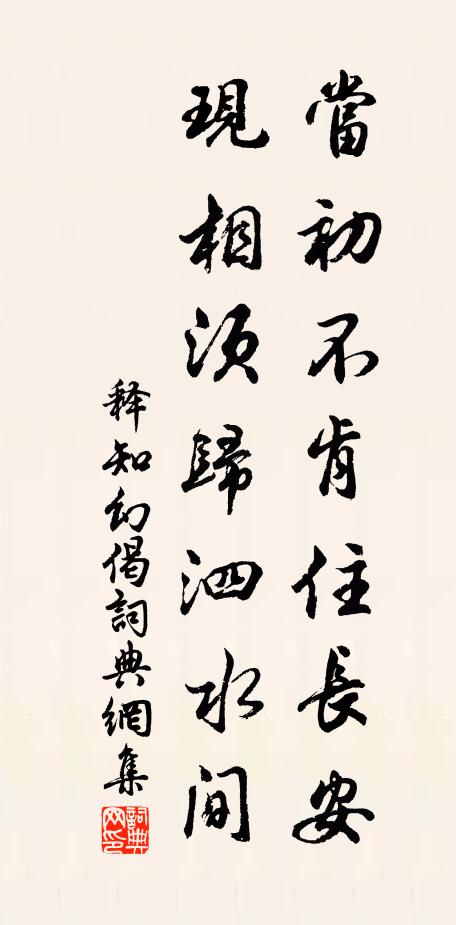 當初不肯住長安
現相須歸泗水间
释知幻偈詞典網集
詞典网印